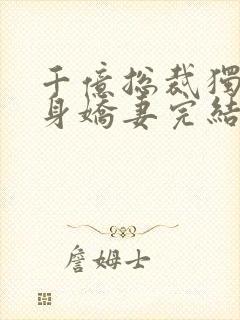 千億總裁獨
身嬌妻完結
詹姆士